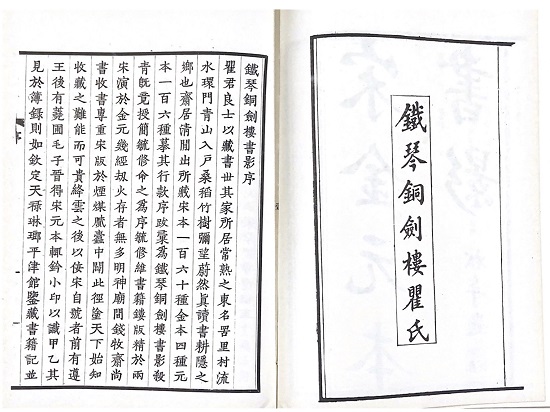 鐵琴銅劍樓瞿氏
鐵琴銅劍樓書影序
瞿君良士以藏書世其家所居常熟之東名罟里村流
水環門青山入戶桑稻竹樹彌望蔚然眞讀書耕隱之
鄉也齋居清閒出所藏宋本一百六十種金本四種元
本一百六種摹其行欵序跋彙爲鐵琴銅劍樓書影殺
青旣竟授簡毓修命之爲序毓修維書籍鏤版精於兩
宋演於金元幾經刼火存者無多明神廟間錢牧齋尚
書收書專重宋版於煙煤膩蠹中闢此徑塗天下始知
收藏之難能而可貴絳雲之後以佞宋自號者前有遵
王後有蕘圃毛子晉得宋元本輒鈐小印以識甲乙其
見於簿錄則如欽定天祿琳瑯平津館鑒藏書籍記並
序
一